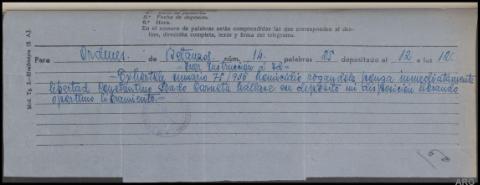 5.ª Fecha de depósito.
6.ª Hora.
En el número de palabras serán comprendidas las que corresponden al des-
tino, dirección completa, texto y firma del telegrama.
Para Ordenes. de Betanzos núm. 14 palabras 25 depositado el 12 a las 12
Juez Instrucción a
Exhortele sumario 75 1936 homicidio rogandole ponga inmediatamente
libertad Constantino Prado hallase en deposito mi disposición librando
oportuno mandamiento.-